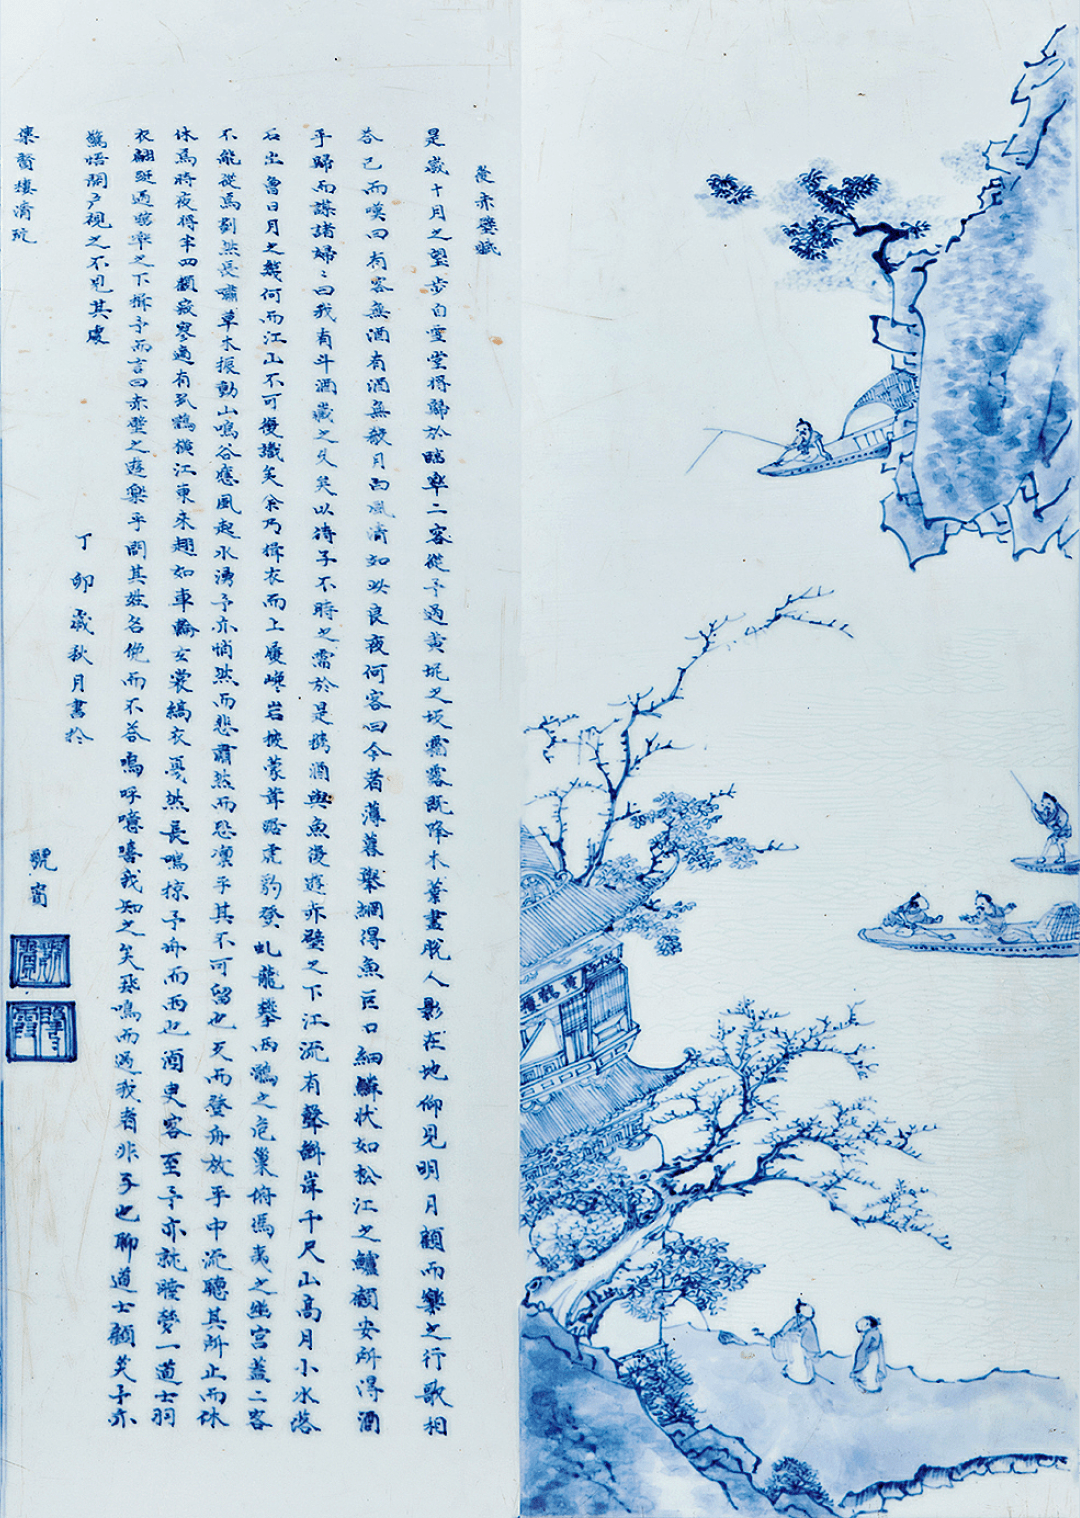 後赤壁賦
是歲十月之望步自雪堂將歸於臨皋二客從予過黃坭之坂霜露既降木葉盡脫人影在地仰見明月顧而樂之行歌相
答已而嘆曰有客無酒有酒無殽月白風清如此良夜何客曰今者薄暮舉網得魚巨口細鱗状如松江之鱸顧安所得酒
乎歸而謀諸婦婦曰我有斗酒藏之久矣以待子不時之需於是攜酒與魚復遊赤壁之下江流有聲斷岸千尺山高月小水落
石出曾日月之幾何而江山不可復識矣余乃攝衣而上履巉岩披蒙茸踞虎豹登虬龍攀西鶻之危巢俯馮夷之幽宮蓋二客
不能從焉劃然長嘯草木振動山鳴谷應風起水湧予亦悄然而悲肅然而恐凜乎其不可留也反而登舟放乎中流聽其所止而休
休焉時夜將半四顧寂寥適有孤鶴橫江東來翅如車輪玄裳縞衣戛然長鳴掠予舟而西也酒史客至予亦就睡夢一道士羽
衣翩躚過臨皋之下揖予而言曰赤壁之遊樂乎問其姓名俛而不答嗚呼噫嘻我知之矣飛鳴而過我者非子也聊道士顧笑予亦
驚悟開戶視之不見其處
丁卯歲秋月書於
集賢樓清玩
號窗
黃鶴樓